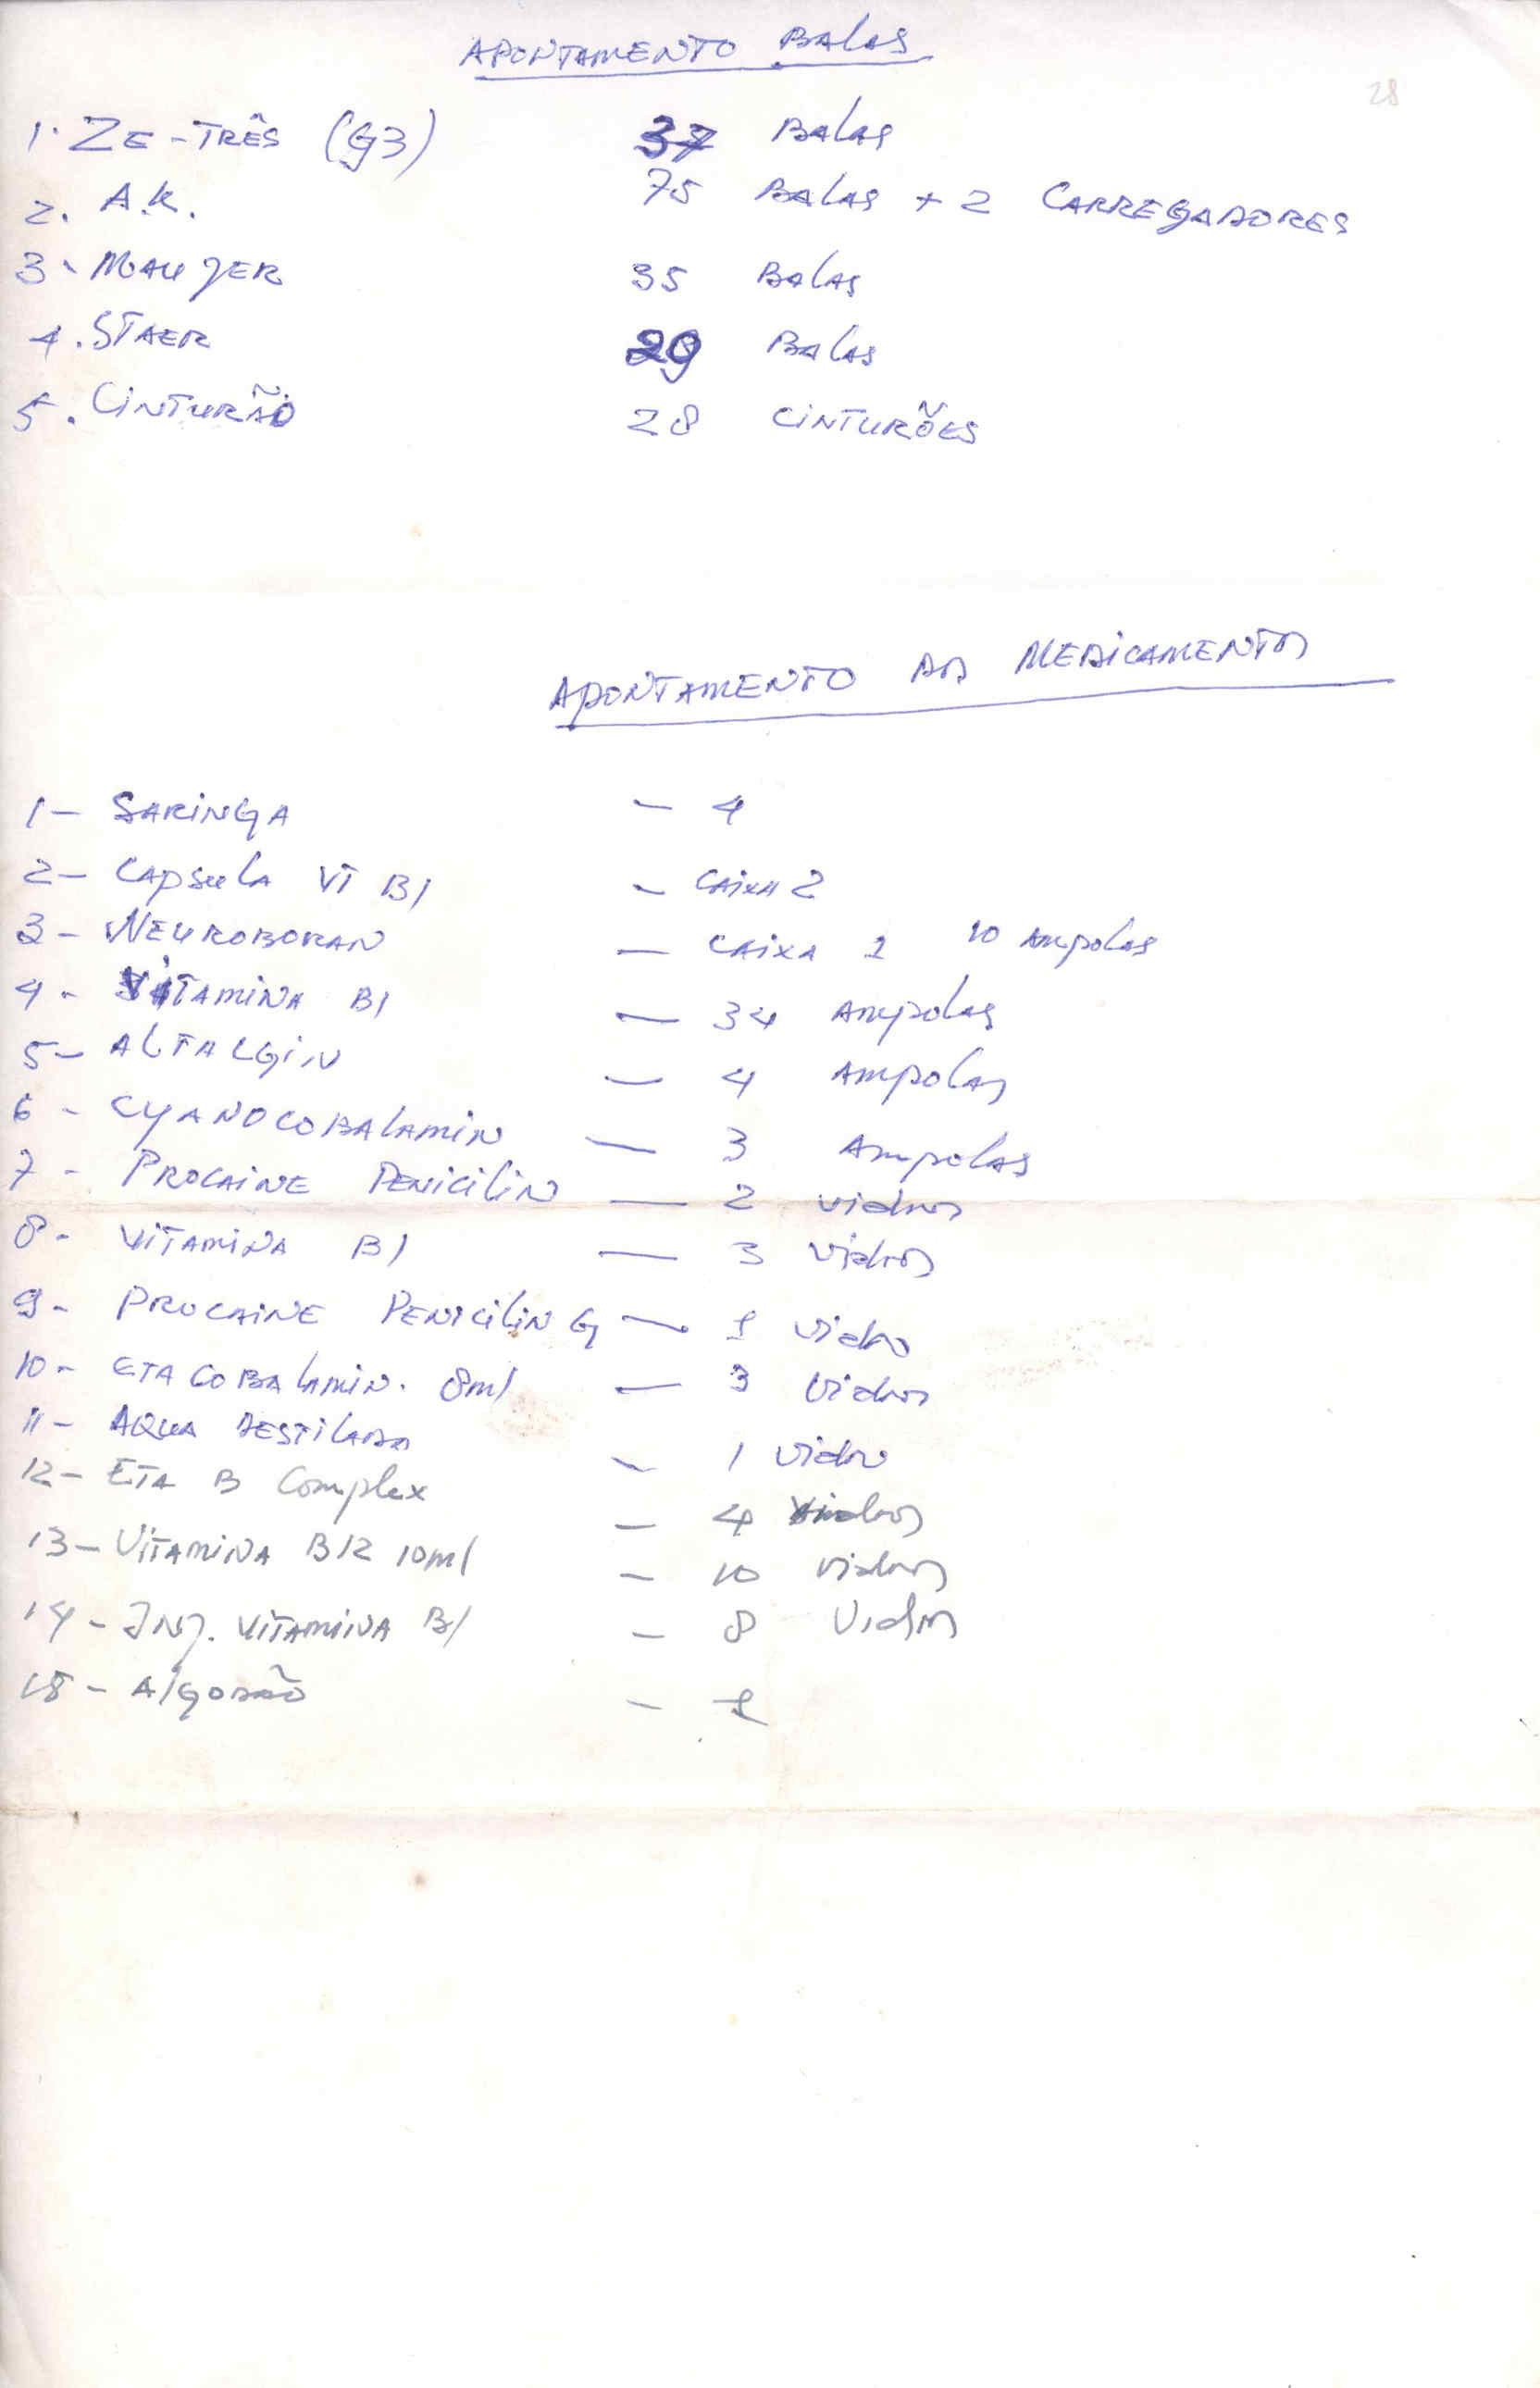 APONTAMENTO BALAS
28
1. ZE-TRÊS (G3) 37 BALAS
2. A.K. 75 BALAS + 2 CARREGADORES
3. MAUZER 35 BALAS
4. STAER 29 BALAS
5. CINTURÃO 28 CINTURÕES
APONTAMENTO DOS MEDICAMENTOS
1- SARINGA - 4
2- CAPSULA VT B1 - CAIXA 2
3- NEUROBORAN - CAIXA 1 10 AMPOLAS
4- VITAMINA B1 - 34 AMPOLAS
5- ALTALGIN - 4 AMPOLAS
6- CYANOCOBALAMIN - 3 AMPOLAS
7- PROCAINE PENICILIN - 2 vidros
8- VITAMINA B1 - 3 vidros
9- PROCAINE PENICILIN G - 1 vidro
10- ETACOBALAMIN. 8ml - 3 vidros
11- AQUA DESTILADA - 1 vidro
12- ETA B Complex - 4 vidros
13- VITAMINA B12 10ml - 10 vidros
14- INJ. VITAMINA B1 - 8 Vidros
15- Algodão - 1